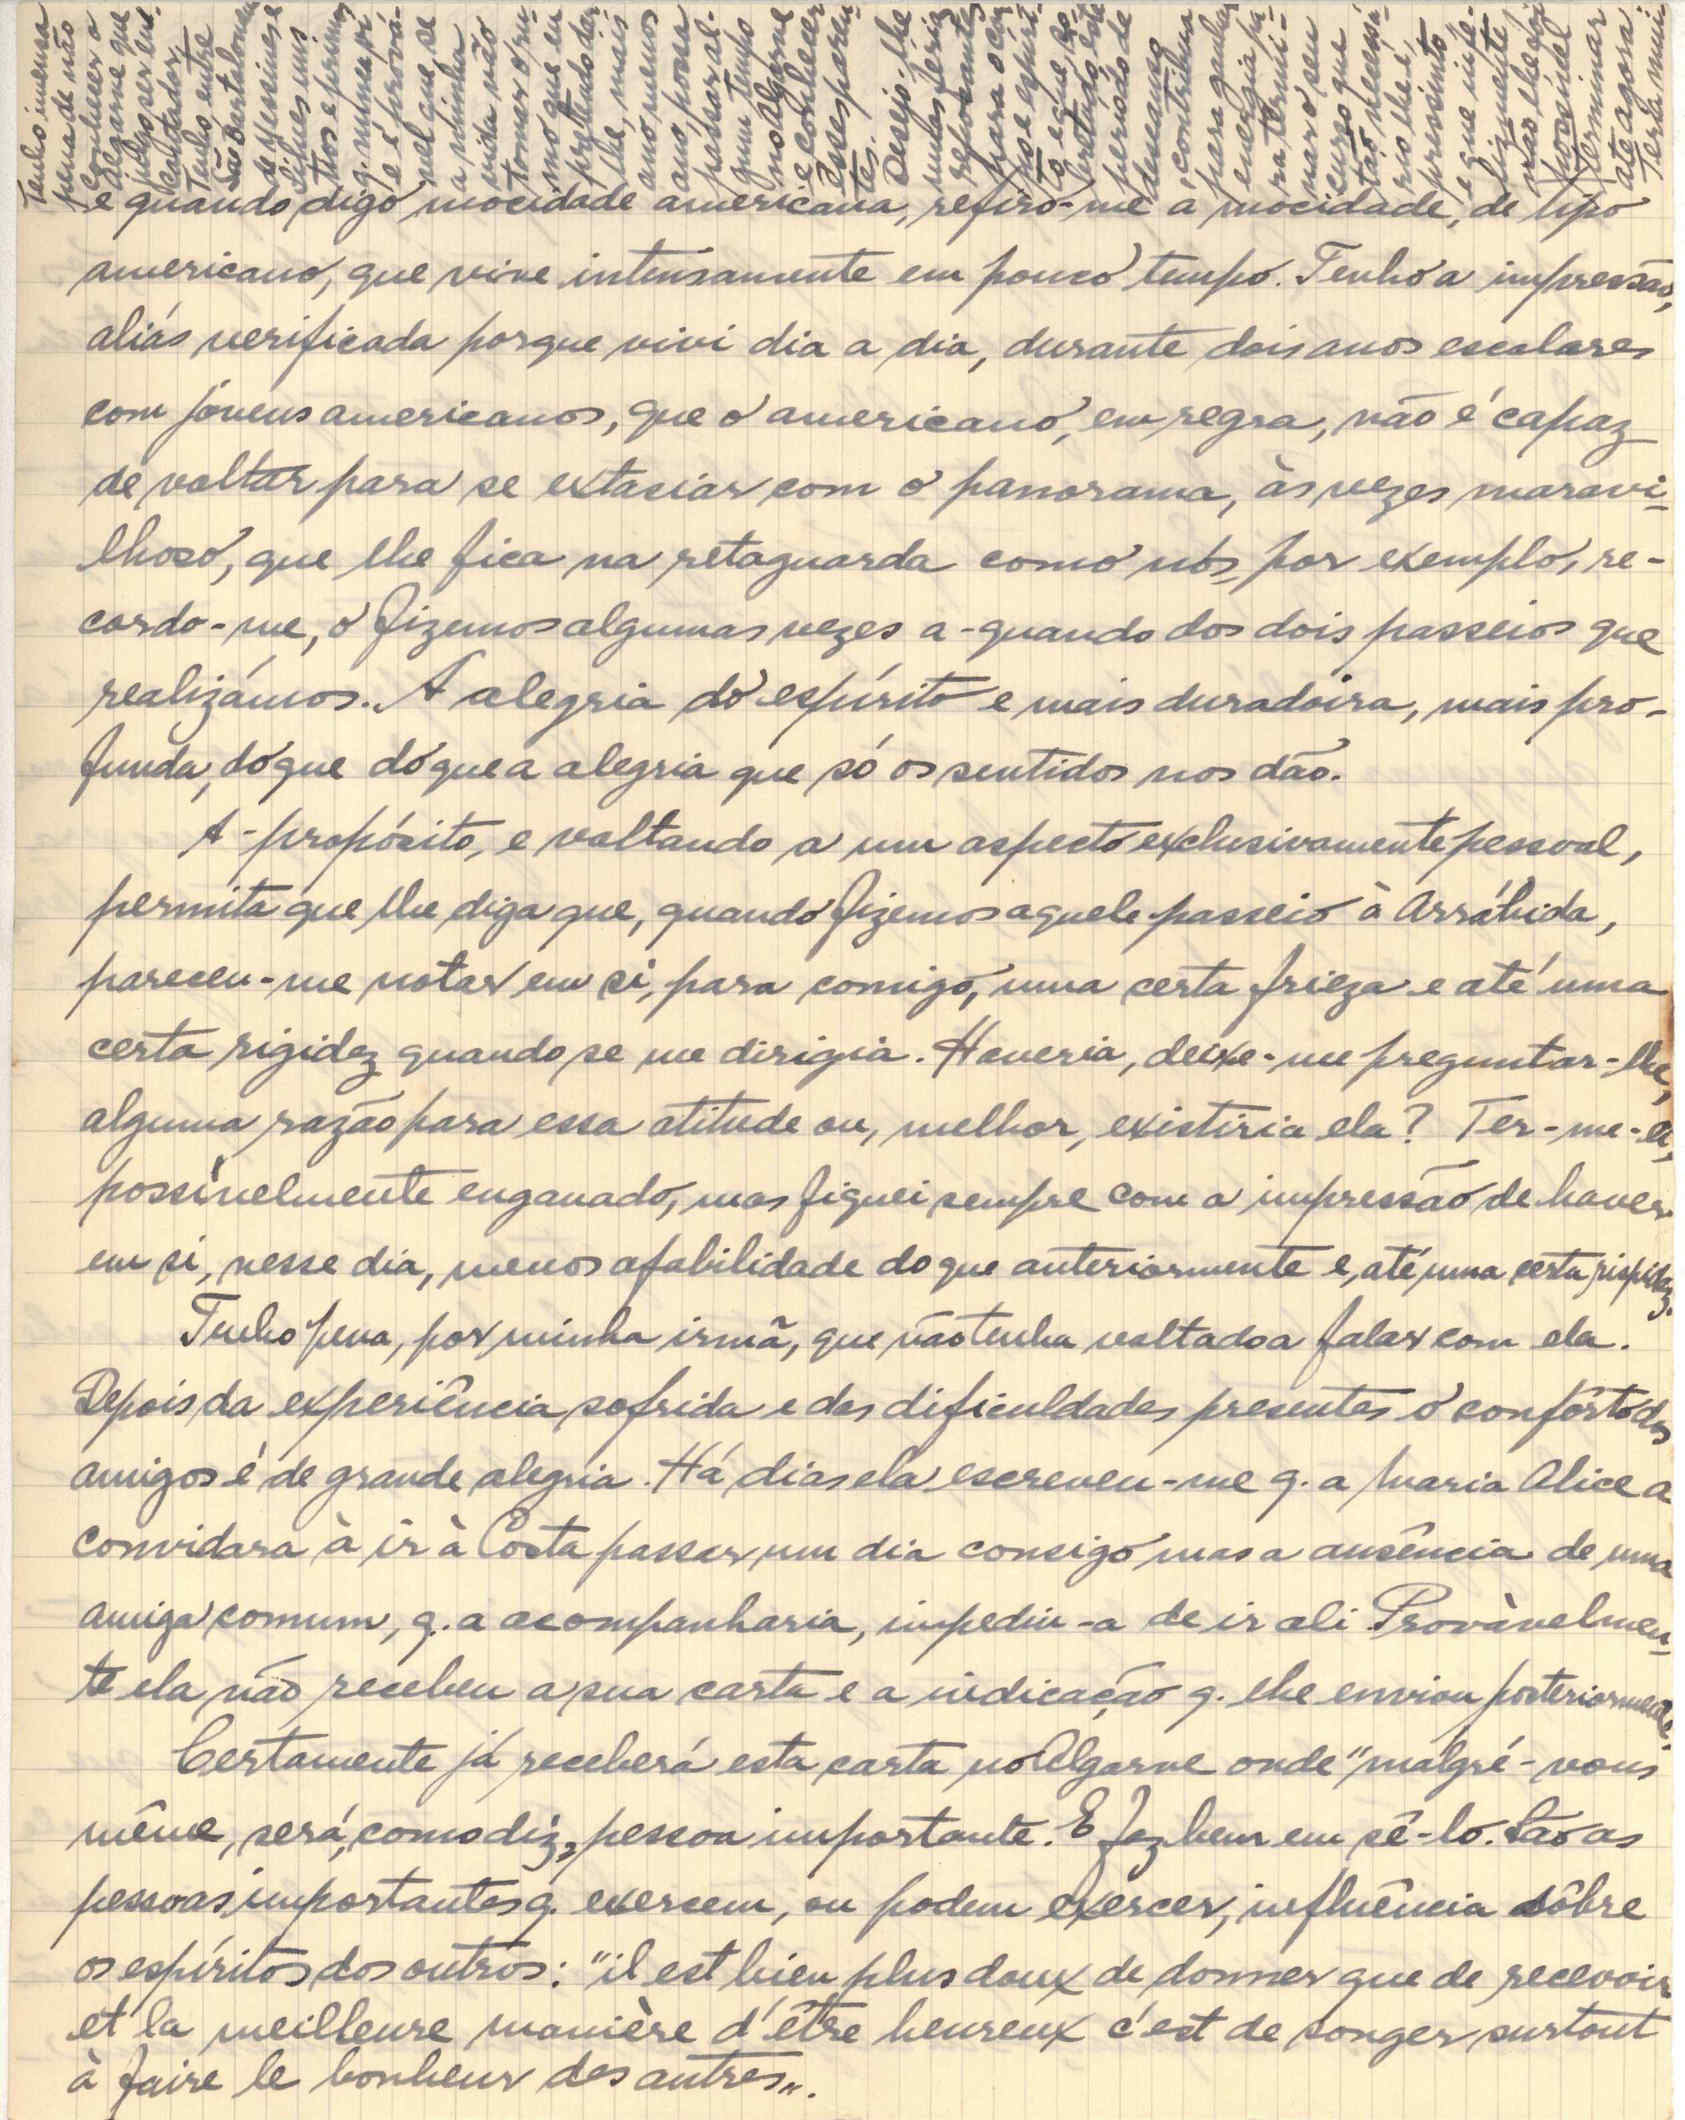 e quando digo mocidade americana, refiro-me à mocidade, de tipo
americano, que vive intensamente em pouco tempo. Tenho a impressão,
aliás verificada porque vivi dia a dia, durante dois anos escolares
com jóvens americanos, que o americano, em regra, não é capaz
de voltar para se extasiar com o panorama, às vezes maravi-
lhoso, que lhe fica na retaguarda como nós, por exemplo, re-
cordo-me, o fizemos algumas vezes a-quando dos dois passeios que
realizámos. A alegria do espírito e mais duradoira, mais pro-
funda, do que do que a alegria que só os sentidos nos dão.
A-propósito, e voltando a um aspecto exclusivamente pessoal,
permita que lhe diga que, quando fizemos aquele passeio à Arrábida,
pareceu-me notar em si, para comigo, uma certa frieza e até uma
certa rigidez quando se me dirigia. Haveria, deixe-me preguntar-lhe,
alguma razão para essa atitude ou, melhor, existiria ela? Ter-me-ei,
possìvelmente enganado, mas fiquei sempre com a impressão de haver
em si, nesse dia, menos afabilidade do que anteriormente e, até, uma certa rispidez.
Tenho pena, por minha irmã, que não tenha voltado a falar com ela.
Depois da experiência sofrida e das dificuldades presentes o confôrto dos
amigos é de grande alegria. Há dias ela escreveu-me q. a Maria Alice a
convidara à ir à Costa passar um dia consigo mas a ausência de uma
amiga comum, q. a acompanharia, impediu-a de ir ali. Provàvelmen-
te ela não recebeu a sua carta e a indicação q. lhe enviou posteriormente.
Certamente já receberá esta carta no Algarve onde "malgré-vous
même, será, como diz, pessoa importante. E faz bem em sê-lo. São as
pessoas importantes q. exercem, ou podem exercer, influência sôbre
os espíritos dos outros: "il est bien plus doux de donner que de recevoir
et la meilleure manière d'être heureux c'est de songer surtout
à faire le bonheur des autres".
Tenho imensa
pena de não
conhecer o
Algarve que
julgo ser en-
cantador.
Tenho entre
São Bartolomeu
de Messines e
Silves uns
tios e primos
q. nunca vi
e é prová-
vel que se
a minha
vida não
tomar o ru-
mo que eu
pretendo dar-
lhe, mais
ano menos
ano, possa
passar al-
gum tempo
no Algarve
e conhecer
esses paren-
tes. Desejo-lhe
umas férias
repousantes
para o cor-
po e espíri-
to e que so-
bretudo este
período de
descanso
contribua
para ganhar
energia pa-
ra termi-
nar o seu
curso que
tão necessá-
rio lhe é,
pressinto
e que infe-
lizmente
não lhe foi
possível
terminar
até agora.
Teria mui-